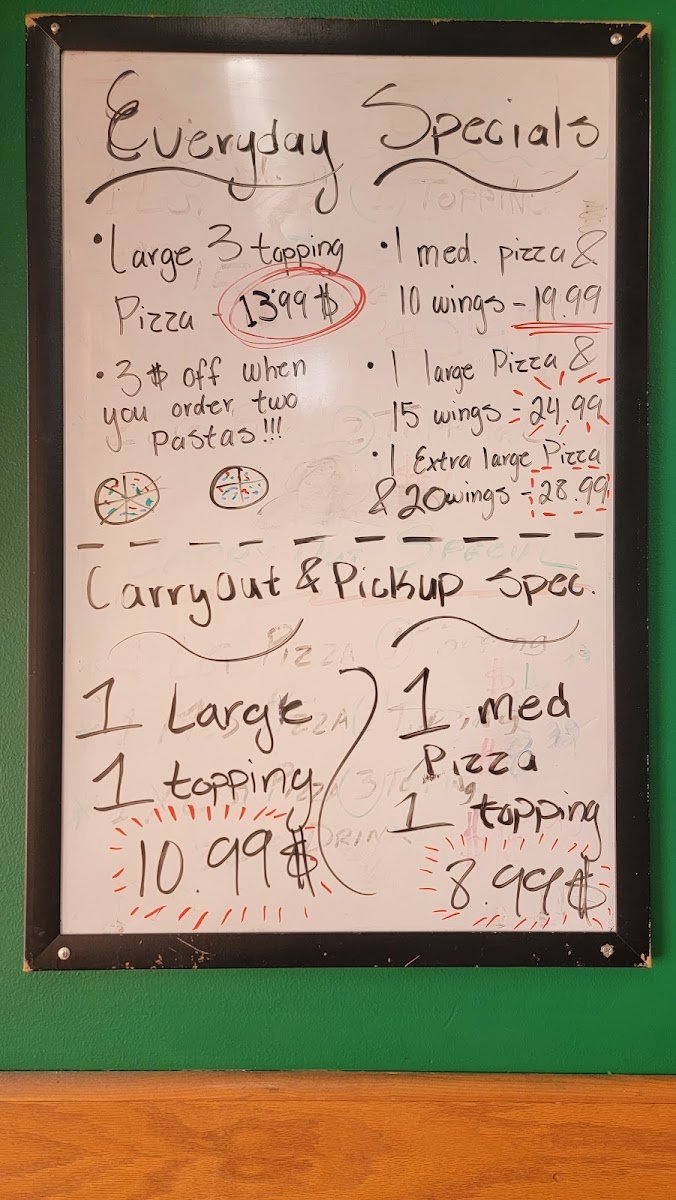 Everyday Specials
• Large 3 topping
Pizza - 13.99 $
• 3 $ off when
you order two
pastas!!!
• 1 med. pizza &
10 wings - 19.99
• 1 large Pizza &
15 wings - 24.99
• 1 Extra large Pizza
& 20 wings - 28.99
Carryout & Pickup Spec.
1 Large
1 topping
10.99 $
1 med
Pizza
1 topping
8.99 $